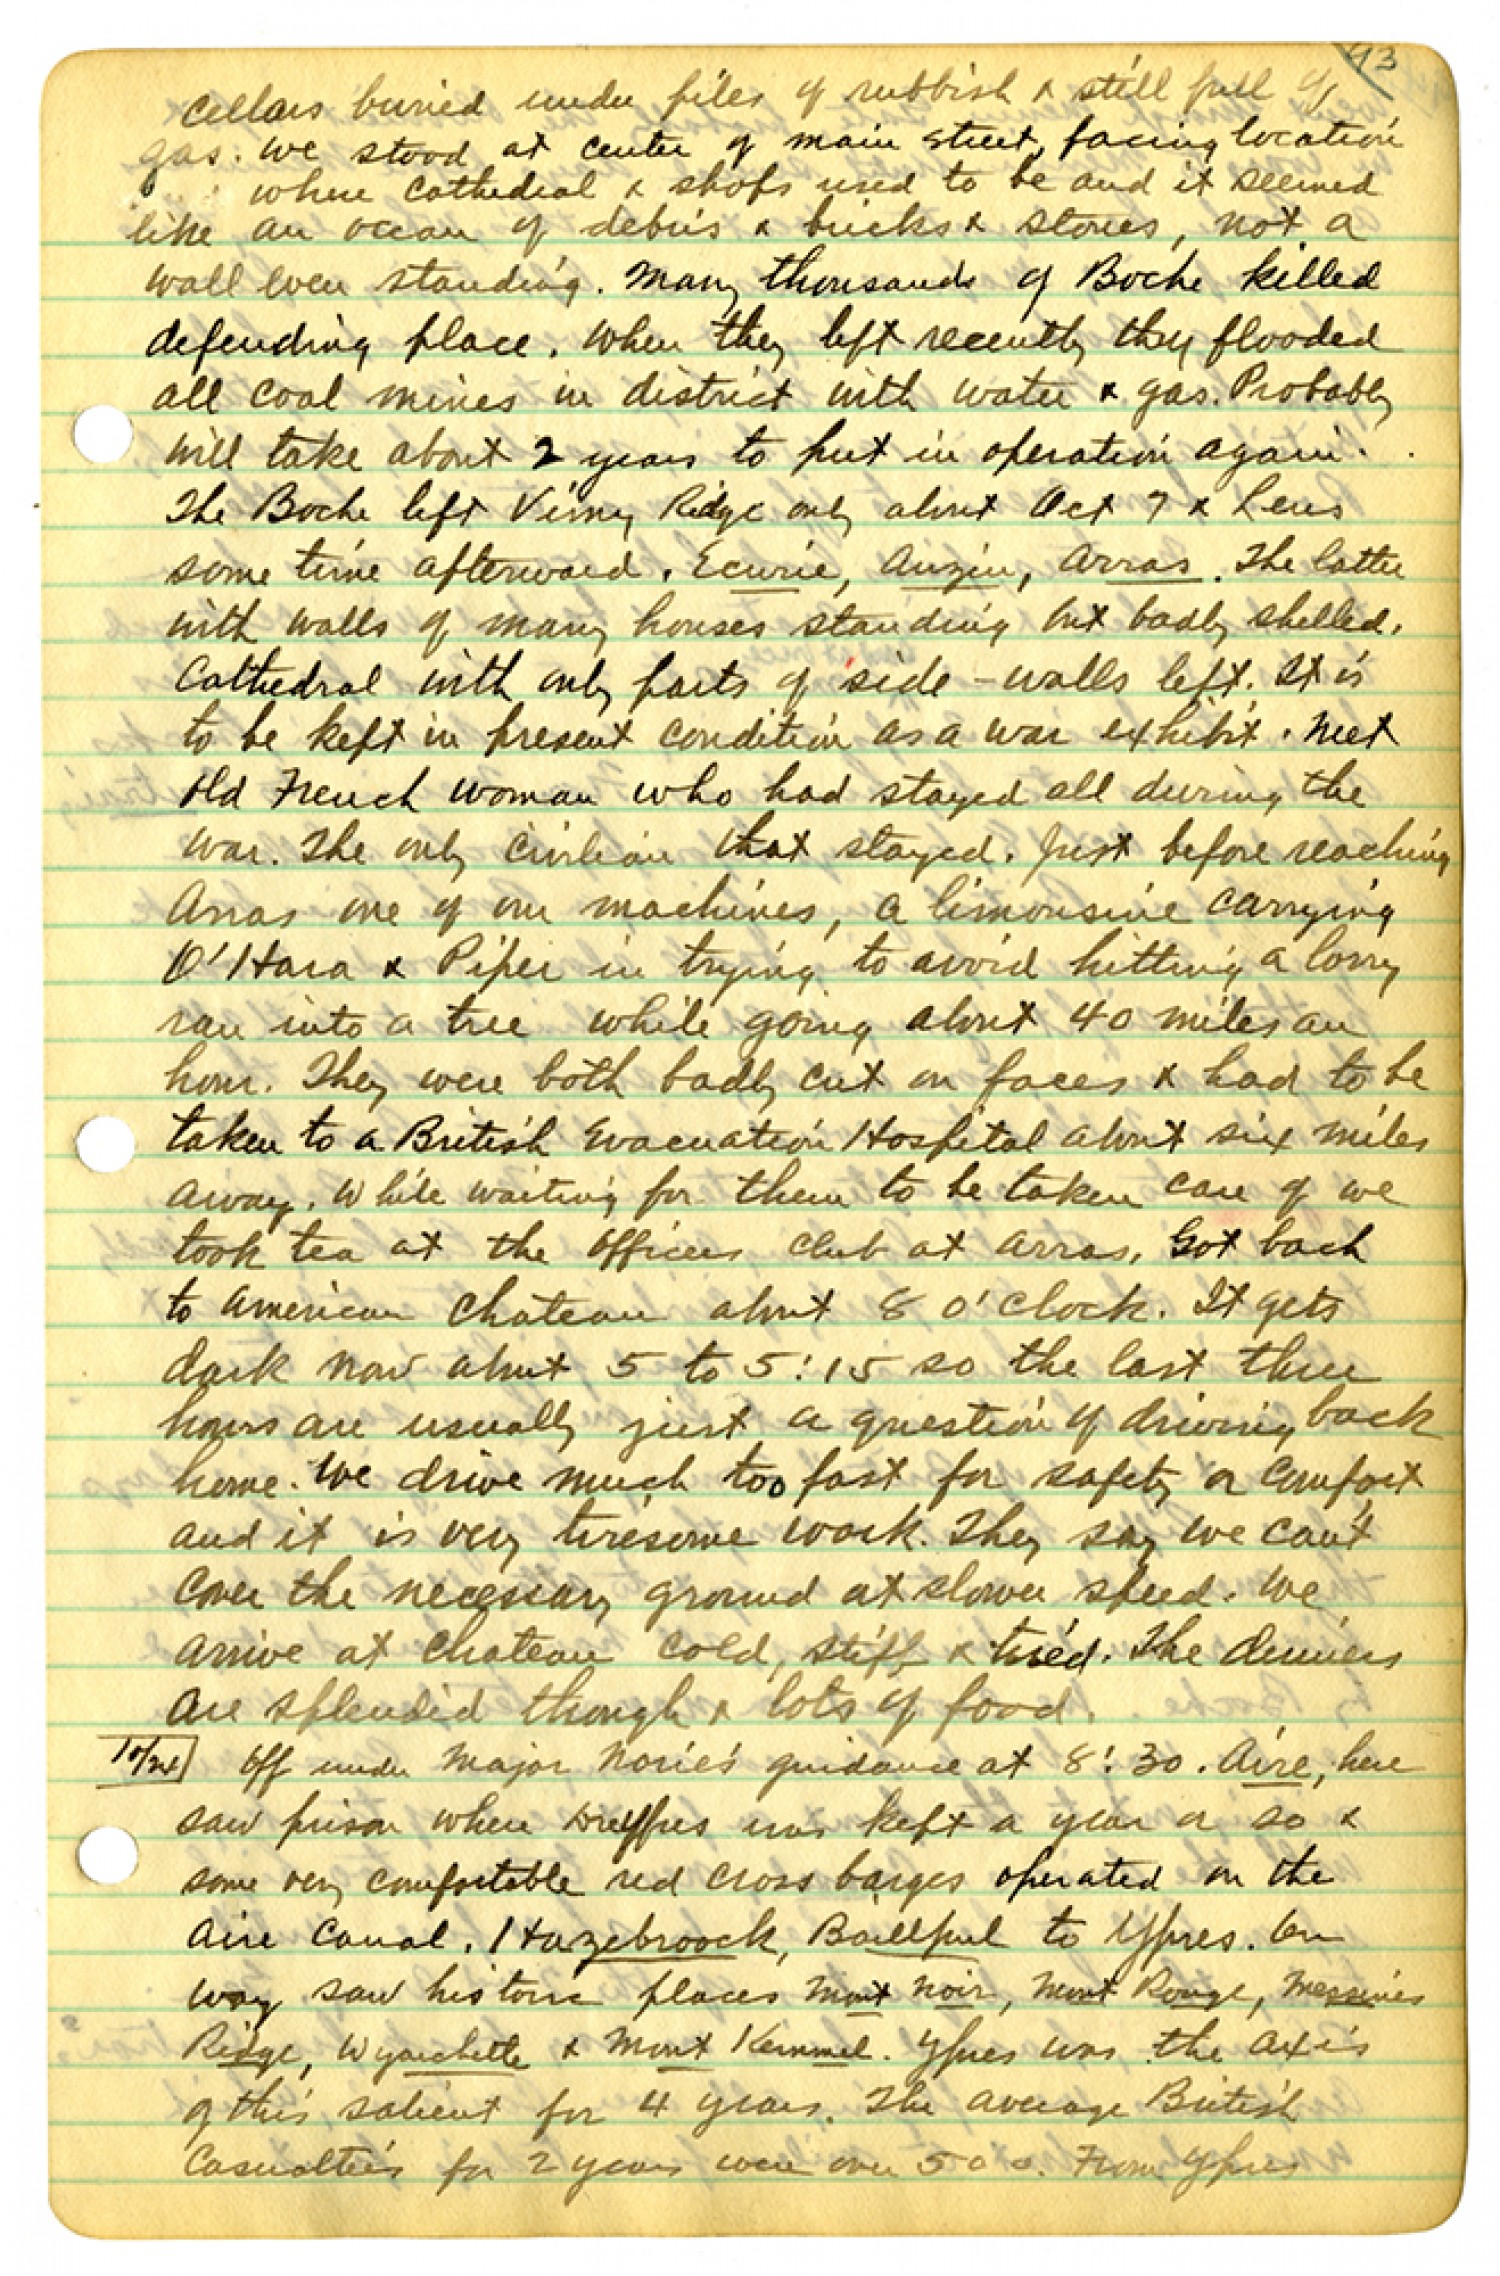 93
cellars buried under piles of rubbish & still full of
gas. We stood at center of main street, facing location
where cathedral & shops used to be and it seemed
like an ocean of debris & bricks & stones, not a
wall even standing. Many thousands of Boche killed
defending place. When they left recently they flooded
all coal mines in district with water & gas. Probably
will take about 2 years to put in operation again.
The Boche left Vimy Ridge only about Oct 7 & Lens
some time afterward. Ecurie, Anzin, Arras. The latter
with walls of many houses standing but badly shelled.
Cathedral with only parts of side-walls left. It is
to be kept in present condition as a war exhibit. Met
old French woman who had stayed all during the
war. The only civilian that stayed. Just before reaching
Arras one of our machines, a limousine carrying
O'Hara & Piper in trying to avoid hitting a lorry
ran into a tree while going about 40 miles an
hour. They were both badly cut on faces & had to be
taken to a British Evacuation Hospital about six miles
away. While waiting for them to be taken care of we
took tea at the Officers Club at Arras. Got back
to American Chateau about 8 o'clock. It gets
dark now about 5 to 5:15 so the last three
hours are usually just a question of driving back
home. We drive much too fast for safety or comfort
and it is very tiresome work. They say we can't
cover the necessary ground at slower speed. We
arrive at Chateau cold, stiff & tired. The dinners
are splendid though & lots of food.
10/24 Off under Major Norie's guidance at 8:30. Aire, here
saw prison where Dreyfus was kept a year or so &
some very comfortable red cross barges operated on the
Aire Canal. Hazebroock, Bailleul to Ypres. On
way saw historic places Mont Noir, Mont Rouge, Messines
Ridge, Wyarchette & Mont Kemmel. Ypres was the axis
of this salient for 4 years. The average British
Casualties for 2 years were over 500. From Ypres